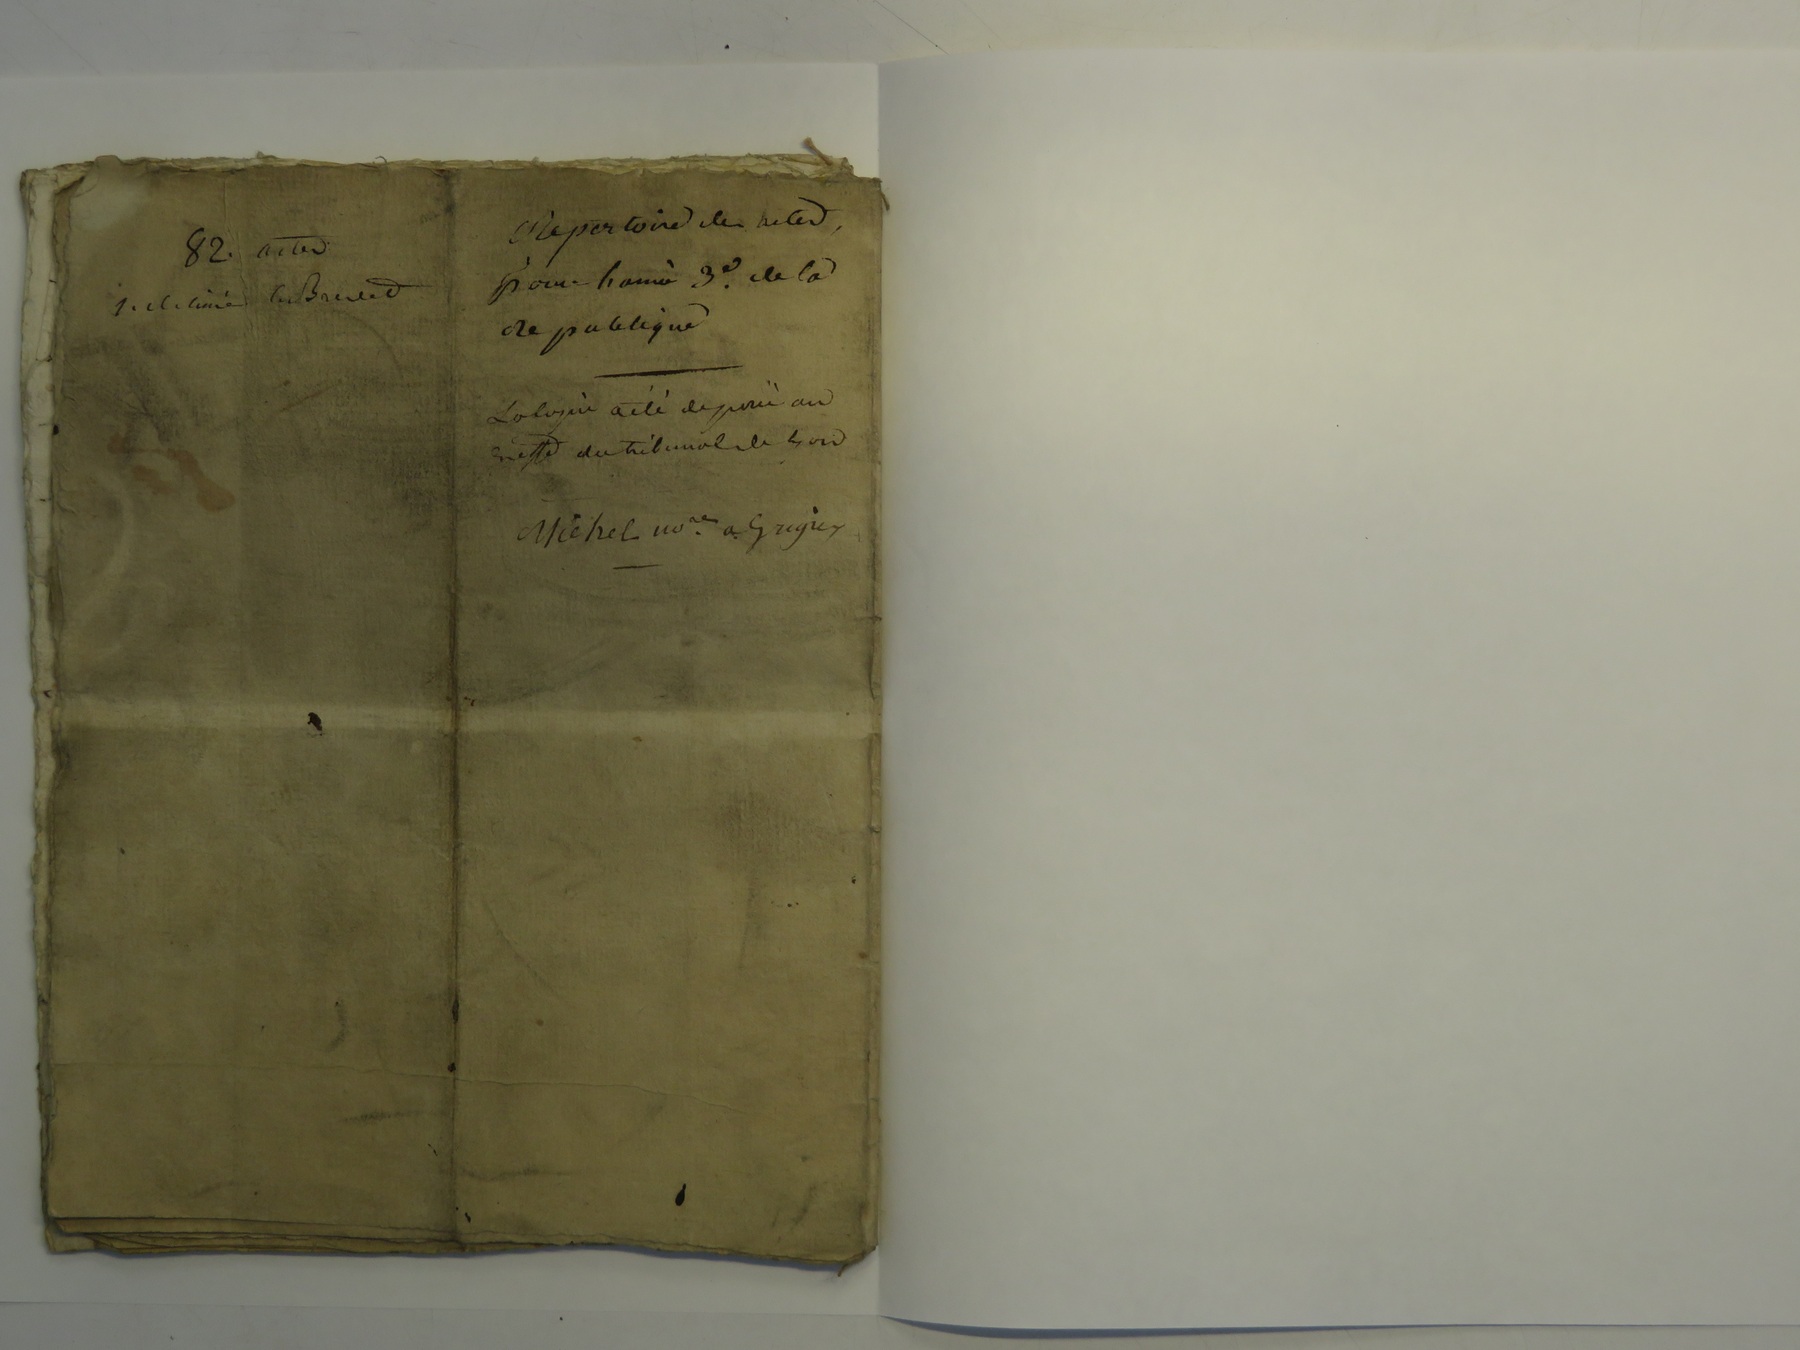 82. actes
Repertoire des actes,
pour l'année 3e. de la
republique
La copie a été deposée au
greffe du tribunal de
Michel nore. a Grigny